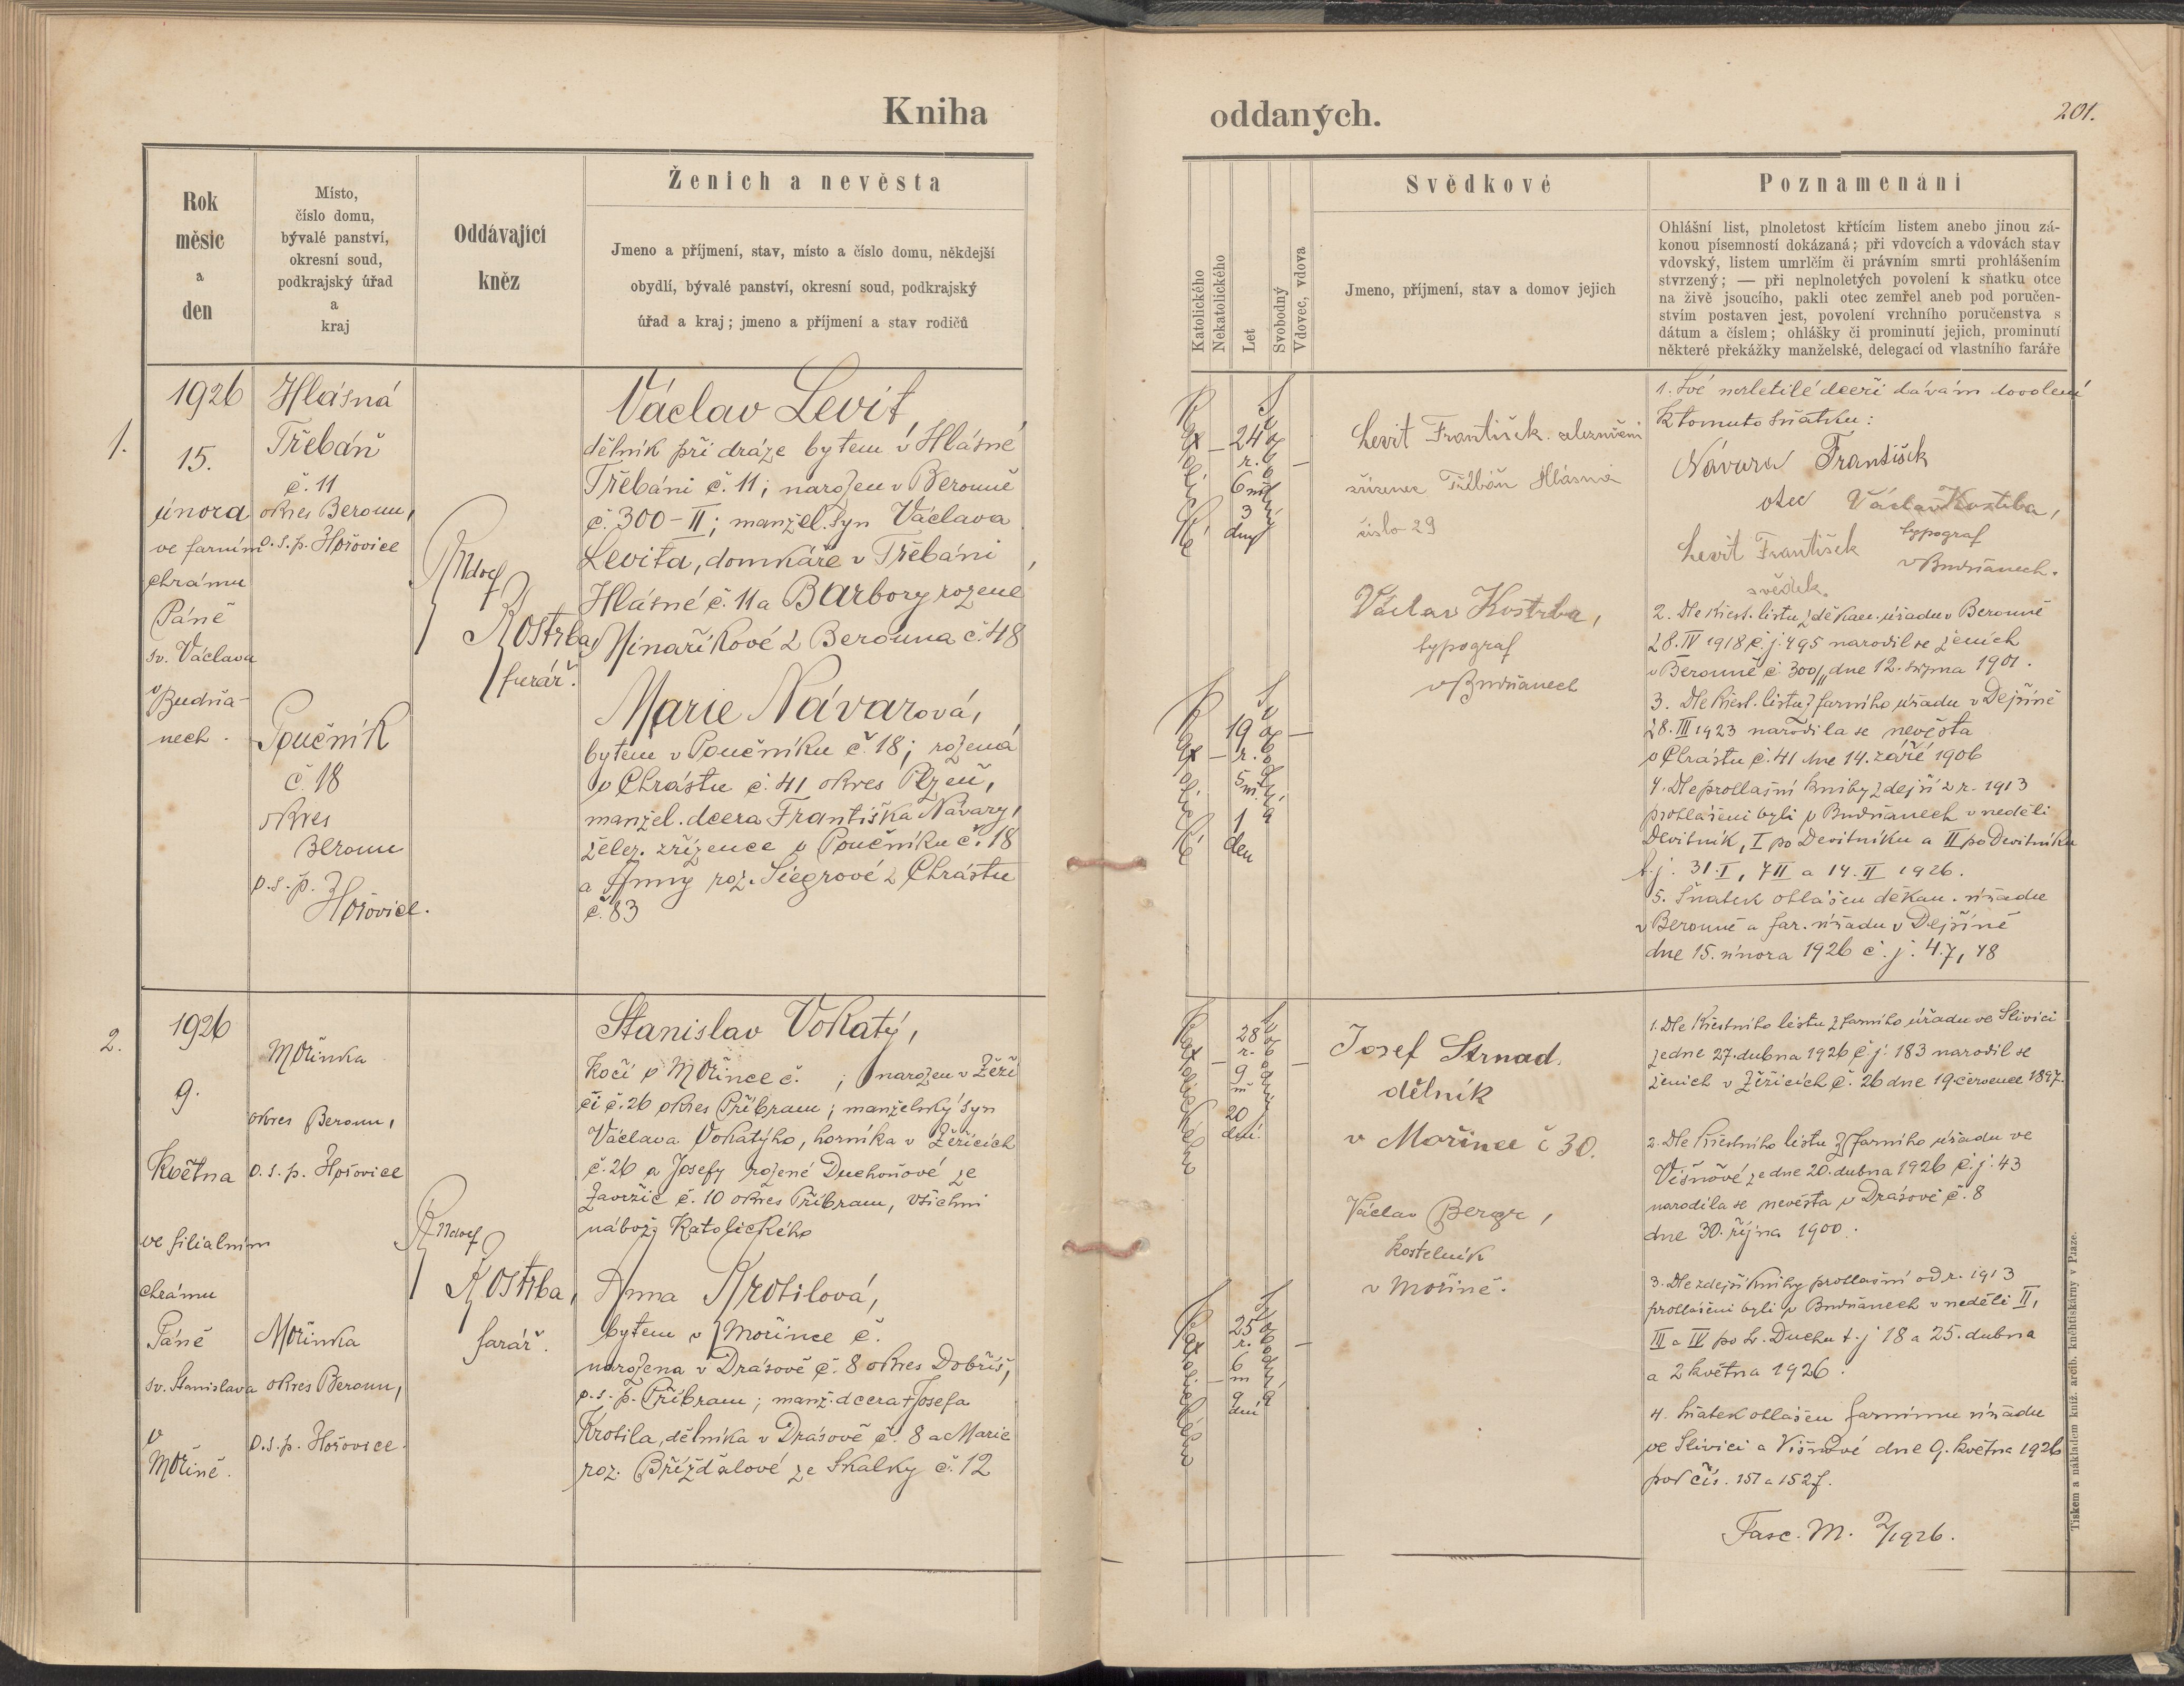 Kniha
oddaných.
201.
Rok
měsíc
a
den
Místo,
číslo domu,
bývalé panství,
okresní soud,
podkrajský úřad
a
kraj
Oddávající
kněz
Ženich a nevěsta
Jmeno a příjmení, stav, místo a číslo domu, někdejší
obydlí, bývalé panství, okresní soud, podkrajský
úřad a kraj; jmeno a příjmení a stav rodičů
Katolického
Nekatolického
Let
Svobodný
Vdovec, vdova
Svědkové
Jmeno, příjmení, stav a domov jejich
Poznamenání
Ohlášní list, plnoletost křtícím listem anebo jinou zá-
konou písemností dokázaná; při vdovcích a vdovách stav
vdovský, listem umrlčím či právním smrti prohlášením
stvrzený; — při neplnoletých povolení k sňatku otce
na živě jsoucího, pakli otec zemřel aneb pod poručen-
stvím postaven jest, povolení vrchního poručenstva s
dátum a číslem; ohlášky či prominutí jejich, prominutí
některé překážky manželské, delegací od vlastního faráře
1.
1926
15.
února
ve farním
chrámu
Páně
sv. Václava
v Budňa-
nech.
Hlásná
Třebáň
č. 11
okres Beroun,
o.s.p. Hořovice
Poučník
č. 18
okres
Beroun
o.s.p.
Hořovice.
Rudolf
Kostrba,
farář.
Václav Levit,
dělník při dráze bytem v Hlásné
Třebáni č. 11; narozen v Berouně
č. 300-II; manžel. syn Václava
Levita, domkáře v Třebáni
Hlásné č. 11 a Barbory rozené
Vinaříkové z Berouna č. 48
Marie Návarová,
bytem v Poučníku č. 18; rozená
v Chrástu č. 41 okres Plzeň,
manžel. dcera Františka Návary,
želez. zřízence v Poučníku č. 18
a Anny roz. Siegrové z Chrástu
č. 83
Katolické
24
r.
6 měs.
3
dny
Svobodný
Katolické
19
r.
5
m.
1
den
Svobodná
Levit František. železniční
zřízenec Třebáň Hlásná
číslo 29
Václav Kostrba,
typograf
v Budňanech
1. Své nezletilé dceři dávám dovolení
k tomuto sňatku:
Návara František
otec
Václav Kostrba,
typograf
v Budňanech.
Levit František
svědek.
2. Dle křest. listu z děkan. úřadu v Berouně
28. IV 1918 č. j. 495 narodil se ženich
v Berouně č. 300/II dne 12. srpna 1901.
3. Dle křest. listu z farního úřadu v Dejšině
28. III 1923 narodila se nevěsta
v Chrástu č. 41 dne 14. září 1906
4. Dle prohlašní knihy zdejší z r. 1913
prohlášeni byli v Budňanech v neděli
Devítník, I po Devítníku a II po Devítníku
t. j. 31. I, 7 II a 14. II 1926.
5. Sňatek ohlášen děkan. úřadu
v Berouně a far. úřadu v Dejšině
dne 15. února 1926 č. j. 47, 48
2.
1926
9.
května
ve filialním
chrámu
Páně
sv. Stanislava
v
Mořině.
Mořinka
okres Beroun,
o.s.p. Hořovice
Mořinka
okres Beroun,
o.s.p. Hořovice.
Rudolf
Kostrba,
farář.
Stanislav Vokatý,
kočí v Mořince č. ; narozen v Žeži-
ci č. 26 okres Příbram; manželský syn
Václava Vokatýho, horníka v Žežicích
č. 26 a Josefy rozené Duchoňové ze
Zavržic č. 10 okres Příbram, všichni
nábož. katolického
Anna Krotilová,
bytem v Mořince č.
narozena v Drásově č. 8 okres Dobříš,
o.s.p. Příbram; manž. dcera + Josefa
Krotila, dělníka v Drásově č. 8 a Marie
roz. Břížďalové ze Skalky č. 12
Katolického
28
r.
9
m
20
dní.
Svobodný
Katolického
25
r.
6
m
9
dní
Svobodná
Josef Strnad.
dělník
v Mořince č 30.
Václav Bergr,
kostelník
v Mořině.
1. Dle křestního listu z farního úřadu ve Slivici
ze dne 27. dubna 1926 č. j. 183 narodil se
ženich v Žežicích č. 26 dne 19. července 1897.
2. Dle křestního listu z farního úřadu ve
Višňové ze dne 20. dubna 1926 č. j. 43
narodila se nevěsta v Drásově č. 8
dne 30. října 1900.
3. Dle zdejší knihy prohlašní od r. 1913
prohlášeni byli v Budňanech v neděli II,
III a IV po sv. Duchu t. j 18 a 25. dubna
a 2 května 1926.
4. Sňatek ohlášen farnímu úřadu
ve Slivici a Višňové dne 9. května 1926
pod čís. 151 a 152 f.
Fasc. M. 2/1926.
Tiskem a nákladem kníž. arcib. knihtiskárny v Praze.